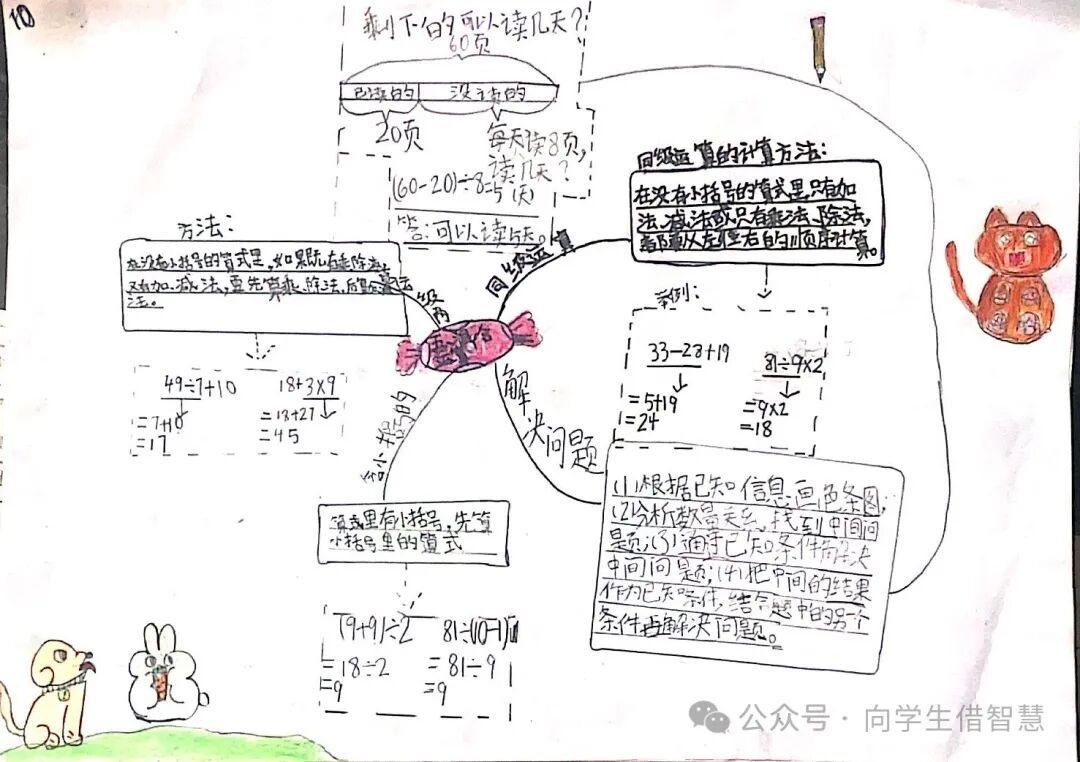 10
剩下的可以读几天?
60页
已读的 没读的
20页
每天读8页,
读几天?
(60-20)÷8=5(天)
答:可以读5天。
同级运算的计算方法:
在没有小括号的算式里,只有加
法、减法或只有乘法、除法,
都要从左往右的顺序计算。
示例:
33-28+19
=5+19
=24
81÷9×2
=9×2
=18
同级运算
方法:
在没有小括号的算式里,如果既有乘除法,
又有加、减法,要先算乘、除法,后算
法。
49÷7+10
=7+10
=17
18+3×9
=18+27
=45
两级
含小括号的
算式里有小括号,先算
小括号里的算式
(9+9)÷2
=18÷2
=9
81÷(10-1)
=81÷9
=9
解决问题
(1)根据已知信息画色条图;
(2)分析数量关系,找到中间问
题;(3)通过已知条件解决
中间问题;(4)把中间的结果
作为已知条件,结合题中的另一个
条件再解决问题。
公众号·向学生借智慧